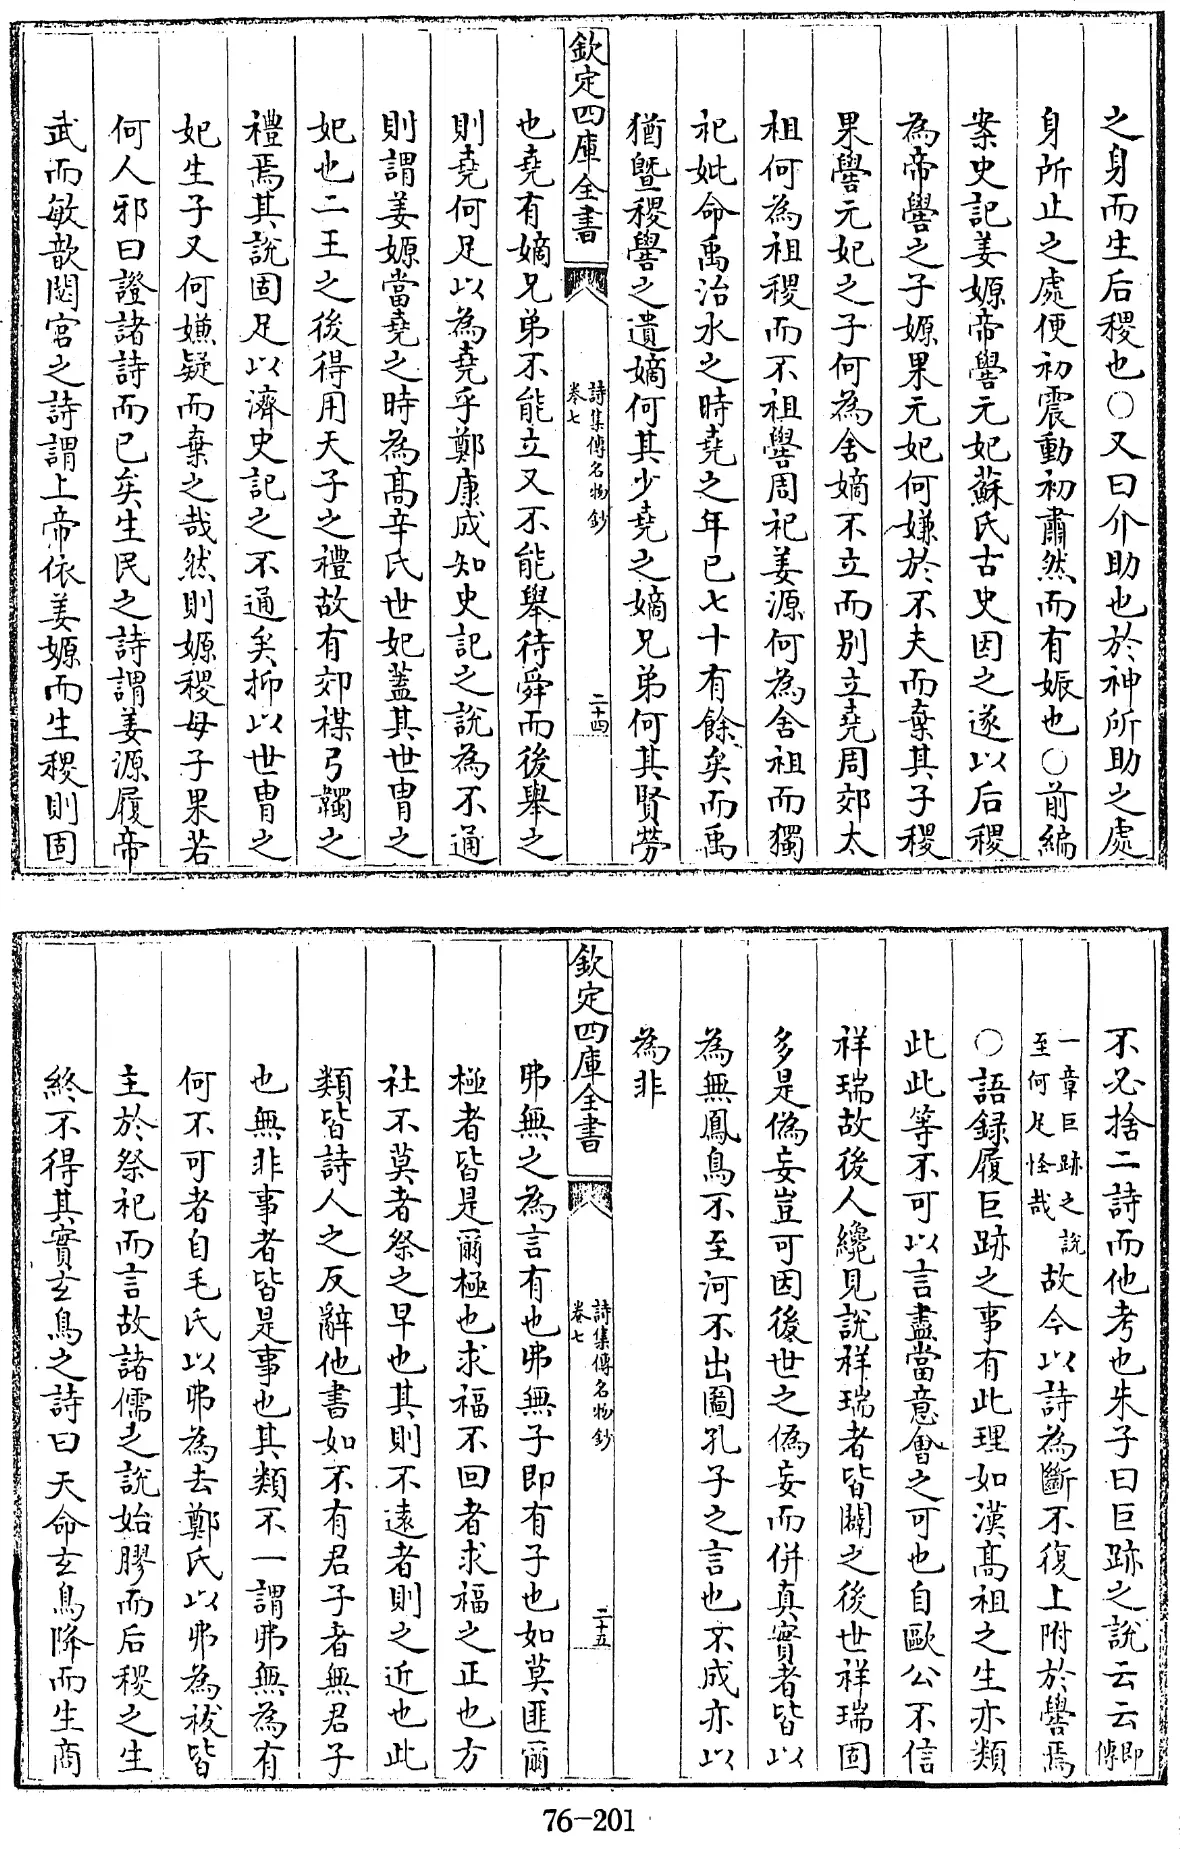 之身而生后稷也○又曰介助也於神所助之處
身所止之處便初震動初肅然而有娠也○前編
案史記姜嫄帝嚳元妃蘇氏古史因之遂以后稷
為帝嚳之子嫄果元妃何嫌於不夫而棄其子稷
果嚳元妃之子何為舍嫡不立而别立堯周郊太
祖何為祖稷而不祖嚳周祀姜源何為舍祖而獨
祀妣命禹治水之時堯之年已七十有餘矣而禹
猶曁稷嚳之遺嫡何其少堯之嫡兄弟何其賢勞
欽定四庫全書
詩集傳名物鈔
卷七
二十四
也堯有嫡兄弟不能立又不能舉待舜而後舉之
則堯何足以為堯乎鄭康成知史記之說為不通
則謂姜嫄當堯之時為高辛氏世妃蓋其世胄之
妃也二王之後得用天子之禮故有郊禖弓韣之
禮焉其說固足以濟史記之不通矣抑以世胄之
妃生子又何嫌疑而棄之哉然則嫄稷母子果若
何人邪曰證諸詩而已矣生民之詩謂姜源履帝
武而敏歆閟宫之詩謂上帝依姜嫄而生稷則固
不必捨二詩而他考也朱子曰巨跡之說云云即傳
一章巨跡之說至何足怪哉故今以詩為斷不復上附於嚳焉
○語録履巨跡之事有此理如漢高祖之生亦類
此此等不可以言盡當意會之可也自歐公不信
祥瑞故後人纔見說祥瑞者皆闢之後世祥瑞固
多是偽妄豈可因後世之偽妄而併真實者皆以
為無鳳鳥不至河不出圖孔子之言也不成亦以
為非
欽定四庫全書
詩集傳名物鈔
卷七
二十五
弗無之為言有也弗無子即有子也如莫匪爾
極者皆是爾極也求福不回者求福之正也方
社不莫者祭之早也其則不遠者則之近也此
類皆詩人之反辭他書如不有君子者無君子
也無非事者皆是事也其類不一謂弗無為有
何不可者自毛氏以弗為去鄭氏以弗為祓皆
主於祭祀而言故諸儒之說始膠而后稷之生
終不得其實玄鳥之詩曰天命玄鳥降而生商
76-201